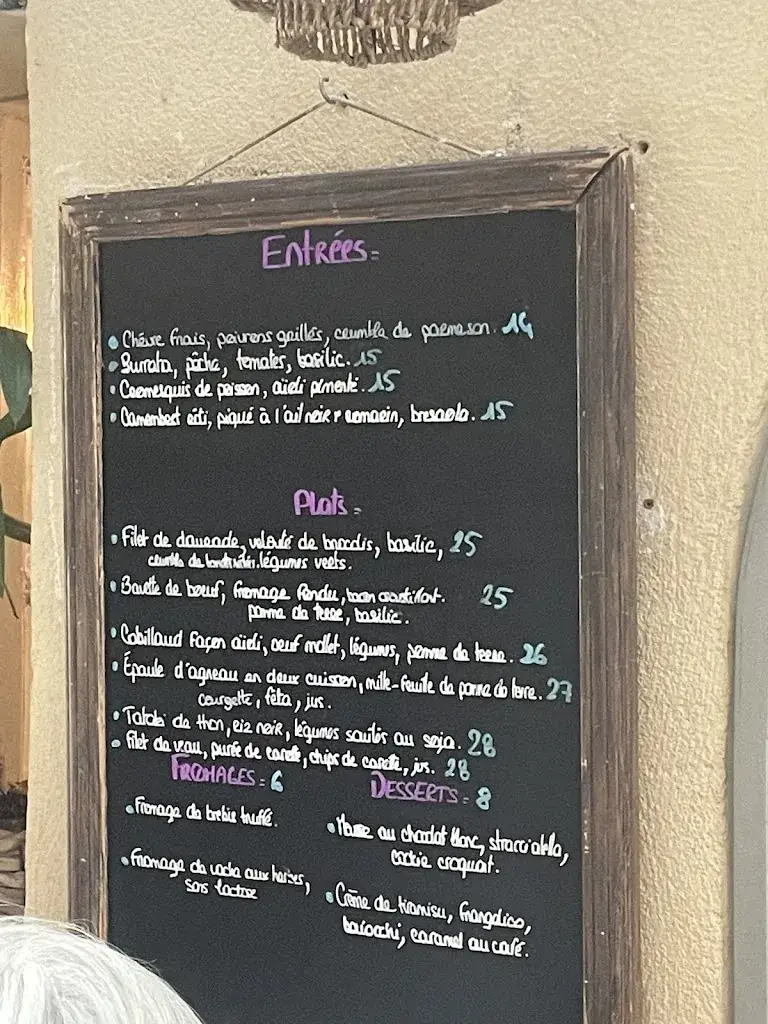 Entrées =
• Chèvre frais, poivrons grillés, crumble de parmesan. 14
• Burrata, pêche, tomates, basilic. 15
• Croomesquis de poisson, aïoli pimenté. 15
• Camembert rôti, piqué à l'ail noir + romarin, bresaola. 15
Plats =
• Filet de daurade, velouté de brocolis, basilic, 25
crumble de légumes verts.
• Bavette de bœuf, fromage fondu, bacon croustillant. 25
pomme de terre, basilic.
• Cabillaud façon aïoli, oeuf mollet, légumes, pomme de terre. 26
• Épaule d'agneau en deux cuisson, mille-feuille de pomme de terre. 27
courgette, féta, jus.
• Tataki de thon, riz noir, légumes sautés au soja. 28
• Filet de veau, purée de carotte, chips de carotte, jus. 28
FROMAGES = 6
• Fromage de brebis truffé.
• Fromage de vache aux herbes,
sans lactose
DESSERTS = 8
• Mousse au chocolat blanc, stracciatella,
cookie croquant.
• Crème de tiramisu, frangelico,
baiocchi, caramel au café.